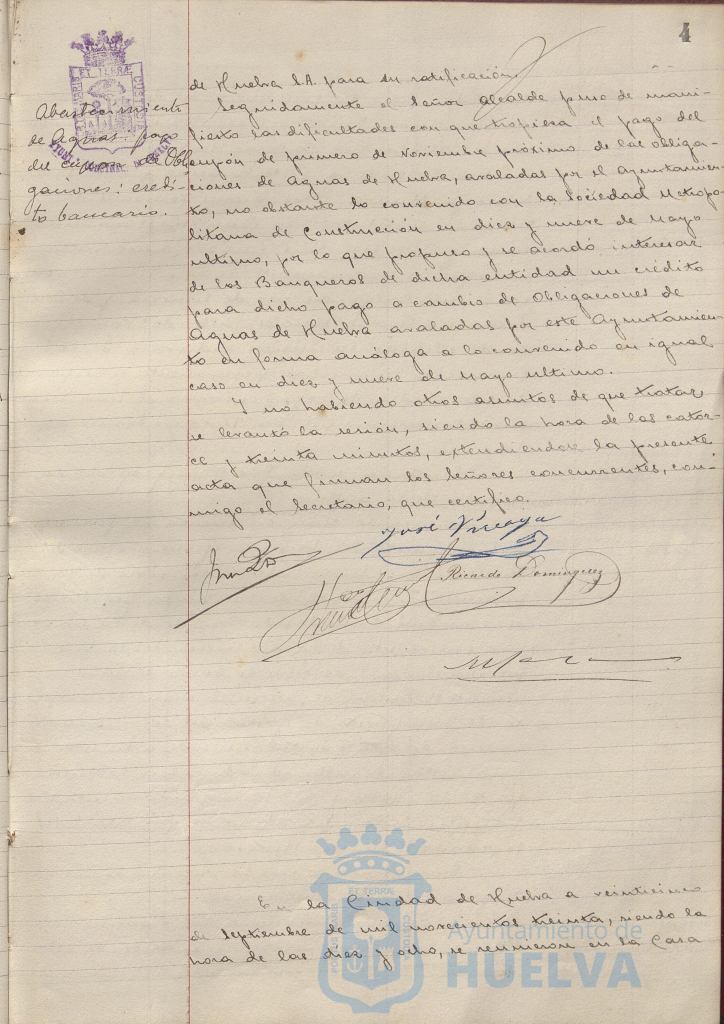 4
Abastecimiento
de Aguas: pago
del cupon de Obli
gaciones: crédi-
to bancario.
de Huelva S.A. para su ratificación.
Seguidamente el Señor Alcalde puso de mani-
fiesto las dificultades con que tropieza el pago del
cupón de primero de Noviembre próximo de las obliga-
ciones de Aguas de Huelva, avaladas por el Ayuntamien-
to, no obstante lo convenido con la Sociedad Metropo-
litana de Construcción en diez y nueve de Mayo
ultimo, por lo que propuso y se acordó interesar
de los Banqueros de dicha entidad un crédito
para dicho pago a cambio de Obligaciones de
Aguas de Huelva avaladas por este Ayuntamien-
to en forma análoga a lo convenido en igual
caso en diez y nueve de Mayo ultimo.
Y no habiendo otros asuntos de que tratar
se levantó la sesión, siendo la hora de las cator-
ce y treinta minutos, extendiendose la presente
acta que firman los Señores concurrentes, con-
migo el Secretario, que certifico.
José
Ricardo Dominguez
En la Ciudad de Huelva a veinticinco
de Septiembre de mil novecientos treinta, siendo la
hora de las diez y ocho, se reunieron en la Casa
ET TERRÆ
Ayuntamiento de
HUELVA